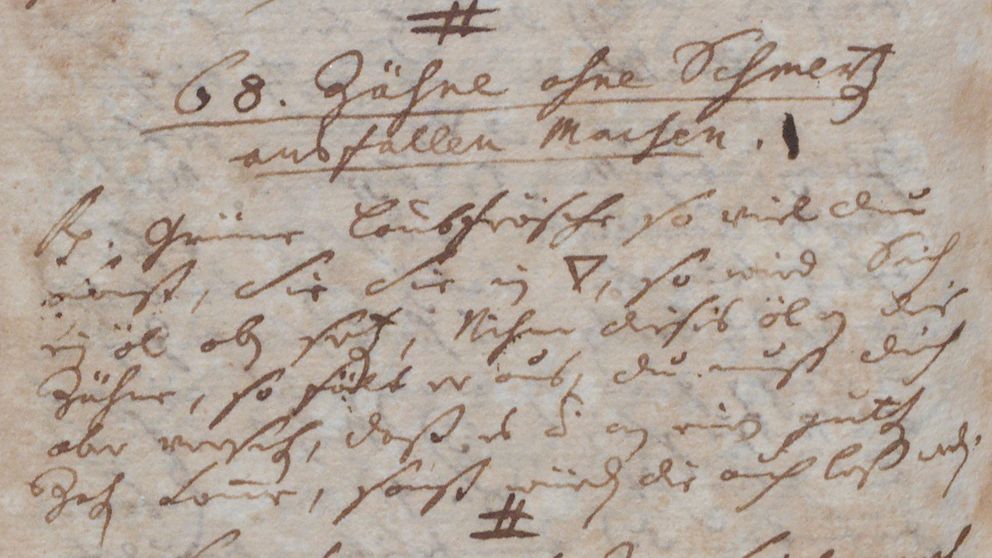 68. Zähne ohne Schmertz
ausfallen Machen.
Rp. Grüne Laubfrösche so viel du
wilst, Sie Sie in ▽, so wird Sich
ein öl oben setz, Nihm dieses öl an die
Zähne, so fält er aus, du must dich
aber versehen, daß es an ein guten
Zahn komme, sonst würd die auch loß